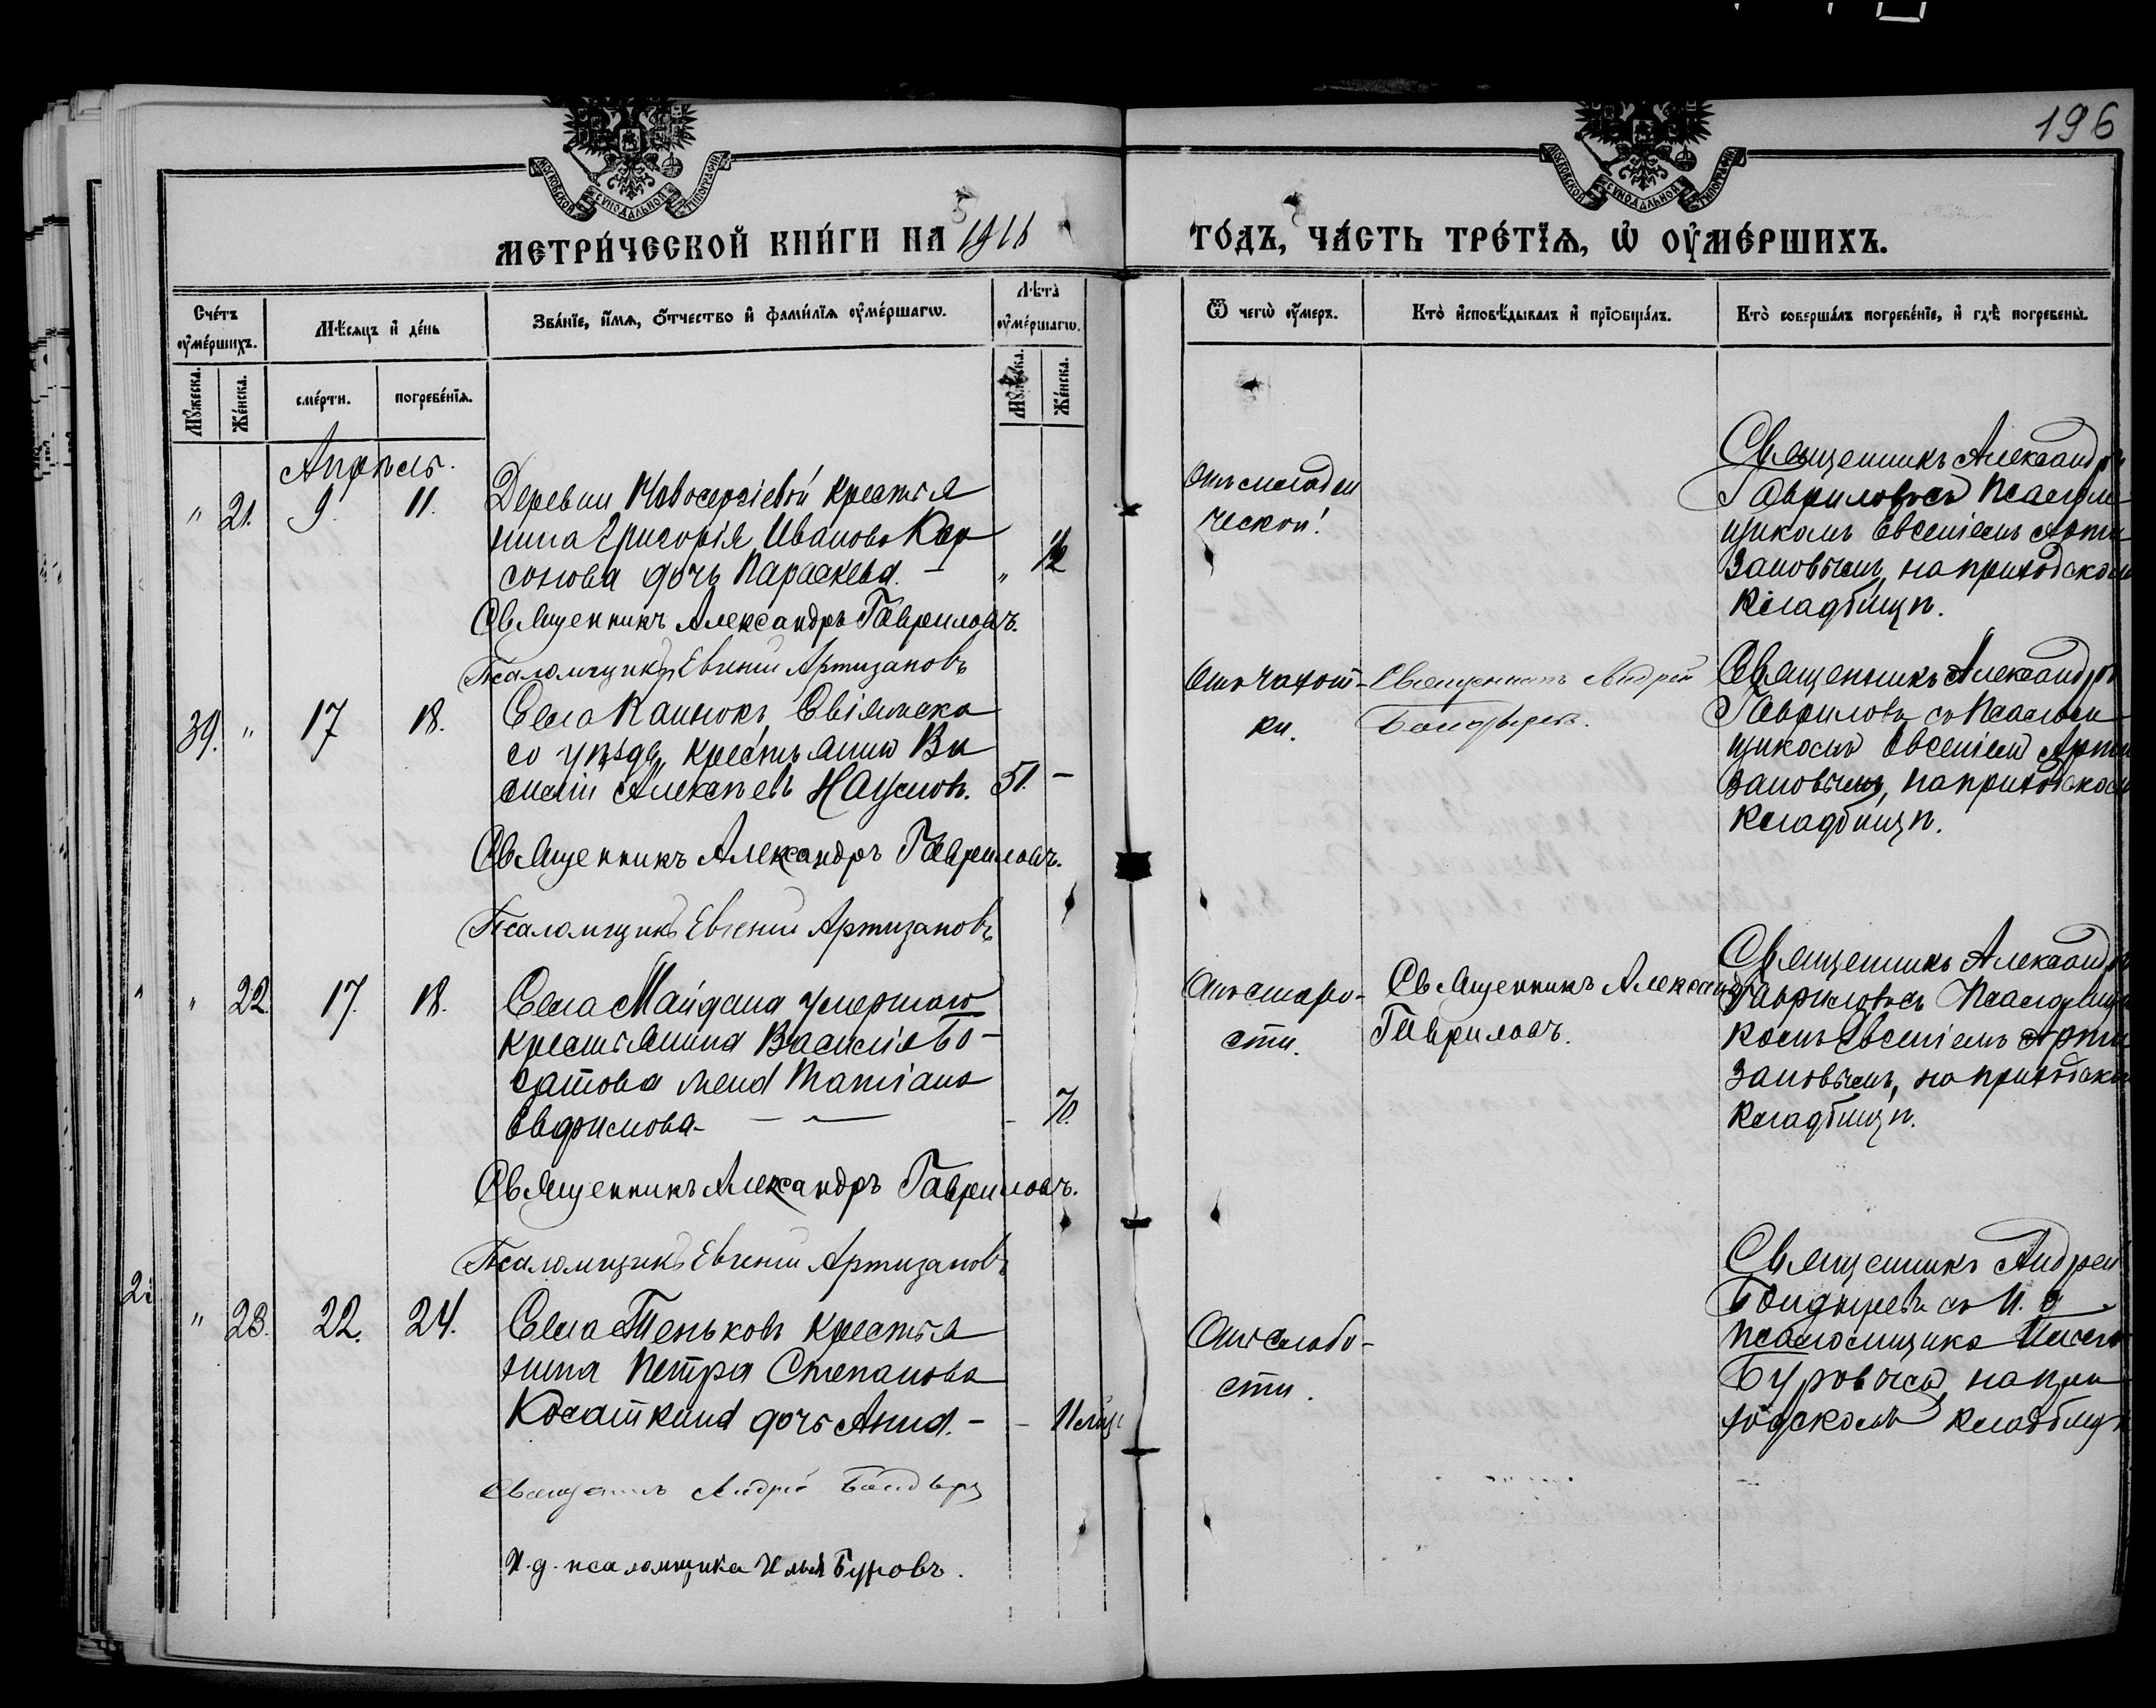 196
МОСКОВСКОЙ СѴНОДАЛЬНОЙ ТИПОГРАФІИ
МОСКОВСКОЙ СѴНОДАЛЬНОЙ ТИПОГРАФІИ
МЕТРИ́ЧЕСКОЙ КНИ́ГИ НА 1916
ГО́ДЪ, ЧА́СТЬ ТРЕ́ТЇѦ, Ѡ҆ ОУ҆МЕ́РШИХЪ.
Сче́тъ оу҆ме́ршихъ.
Мѣ́сяцъ и҆ де́нь
Зва́нїе, и҆́мѧ, ѻ҆́тчество и҆ фами́лїѧ оу҆ме́ршагѡ.
Лѣ́та оу҆ме́ршагѡ.
Ѿ чегѡ̀ оу҆́меръ.
Кто̀ и҆сповѣ́дывалъ и҆ прїѡбща́лъ.
Кто̀ соверша́лъ погребе́нїе, и҆ гдѣ̀ погребены̀.
Мꙋ́жеска.
Же́нска.
сме́рти.
погребе́нїѧ.
Мꙋ́жеска.
Же́нска.
Апрѣль.
" 21. 9. 11. Деревни Новосергіевой крестья
нина Григорія Иванова Кор
сонова дочь Параскева. - " 1/2
Священникъ Александръ Гавриловъ.
Псаломщикъ Евгеній Артизановъ
Отъ младен
ческой.
Священникъ Александръ
Гавриловъ съ Псаломщ
щикомъ Евгеніемъ Арти
зановымъ, на приходскомъ
кладбищѣ.
39. " 17 18. Села Каинокъ, Свіяжска
го уѣзда, крестьянинъ Ва
силій Алексѣевъ Наумовъ. 51. -
Священникъ Александръ Гавриловъ.
Псаломщикъ Евгеній Артизановъ
Отъ чахот-
ки.
Священникъ Андрей
Бондыревъ.
Священникъ Александръ
Гавриловъ съ Псаломщ
щикомъ Евгеніемъ Арти
зановымъ, на приходскомъ
кладбищѣ.
" 22. 17. 18. Села Майдана умершаго
крестьянина Василія Бо-
гатова жена Татіана
Евфимова - - 70.
Священникъ Александръ Гавриловъ.
Псаломщикъ Евгеній Артизановъ
Отъ старо-
сти.
Священникъ Александръ
Гавриловъ.
Священникъ Александръ
Гавриловъ съ Псаломщи
комъ Евгеніемъ Арти
зановымъ, на приходском
кладбищѣ.
" 23. 22. 24. Села Теньковъ крестья
нина Петра Степанова
Косаткина дочь Анна. - -
Священникъ Андрей Бондыр
И. д. псаломщика Илья Буровъ.
Отъ слабо-
сти.
Священникъ Андрей
Бондыревъ съ И. д.
псаломщика Ильею
Буровымъ, на при
ходскомъ кладбищѣ